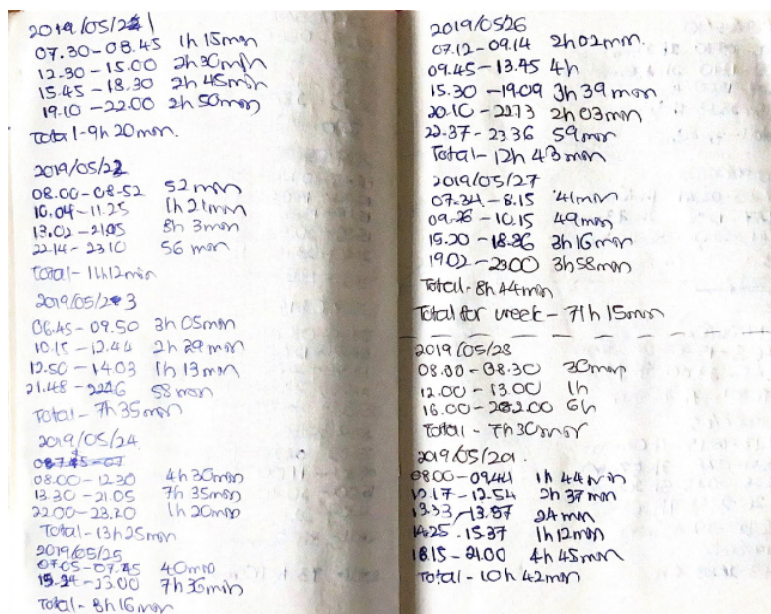 2019/05/21
07.30-08.45 1h 15min
12.30-15.00 2h 30min
15.45-18.30 2h 45min
19.10-22.00 2h 50min
Total-9h 20min.
2019/05/22
08.00-08-52 52min
10.04-11.25 1h 21min
13.02-21.05 8h 3min
22.14-23.10 56 min
Total-11h12min
2019/05/23
06.45-09.50 3h 05min
10.15-12.44 2h 29min
12.50-14.03 1h 13min
21.48-2246 58min
Total-7h 35min
2019/05/24
08.00-12.30 4h 30min
13.30-21.05 7h 35min
22.00-23.20 1h 20min
Total-13h 25min
2019/05/25
07.05-07.45 40min
15.24-23.00 7h 36min
Total-8h 16min
2019/0526
07.12-09.14 2h02min.
09.45-13.45 4h
15.30-19.09 3h 39min
20.10-22.13 2h 03min
22.37-23.36 59min
Total-12h 43min
2019/05/27
07.34-8.15 41min
09.26-10.15 49min
15.20-18.36 3h 16min
19.02-23.00 3h 58min
Total-8h 44min
Total for week-71h 15min
2019/05/28
08.00-08.30 30min
12.00-13.00 1h
16.00-22.00 6h
Total-7h30min
2019/05/29.
08.00-09.44 1h 44min
12.17-12.54 2h 37min
13.33-13.57 24min
14.25.15.37 1h12min
18.15-21.00 4h 45min
Total-10h 42min